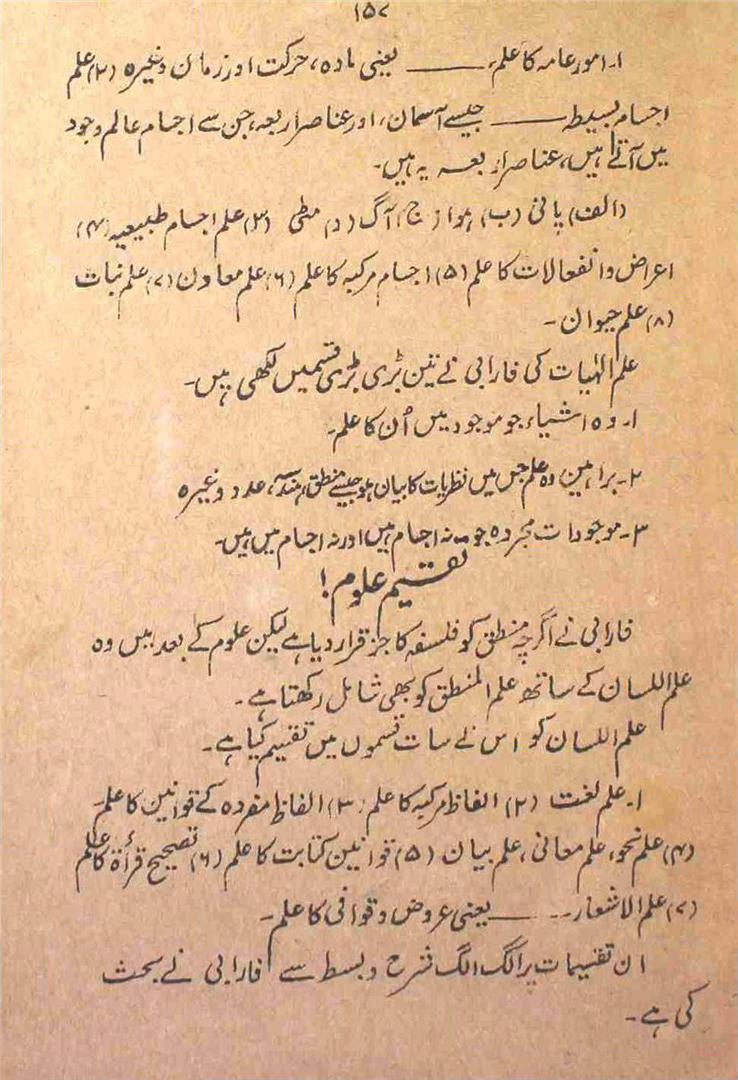 ۱۵۷
۱۔ امور عامہ کا علم، ——— یعنی مادہ، حرکت اور زمان وغیرہ (۲) علم
اجسام بسیطہ ——— جیسے آسمان، اور عناصر اربعہ، جن سے اجسام عالم وجود
میں آتے ہیں، عناصر اربعہ یہ ہیں۔
(الف) پانی (ب) ہوا (ج) آگ (د) مٹی (۳) علم اجسام طبیعیہ (۴)
اعراض وانفعالات کا علم (۵) اجسام مرکبہ کا علم (۶) علم معاون (۷) علم نبات
(۸) علم حیوان۔
علم الٰہیات کی فارابی نے تین بڑی بڑی قسمیں لکھی ہیں۔
۱۔ وہ اشیاء جو موجود ہیں اُن کا علم۔
۲۔ براہین وہ علم جس میں نظریات کا بیان ہو جیسے منطق، ہندسہ، عدد وغیرہ
۳۔ موجودات مجردہ جو نہ اجسام ہیں اور نہ اجسام میں ہیں۔
تقسیم علوم!
فارابی نے اگرچہ منطق کو فلسفہ کا جز قرار دیا ہے لیکن علوم کے بعد میں وہ
علم اللسان کے ساتھ علم المنطق کو بھی شامل رکھتا ہے۔
علم اللسان کو اس نے سات قسموں میں تقسیم کیا ہے۔
۱۔ علم لغت (۲) الفاظ مرکبہ کا علم (۳) الفاظ مفردہ کے قوانین کا علم۔
(۴) علم نحو، علم معانی، علم بیان (۵) قوانین کتابت کا علم (۶) تصحیح قرأۃ کا علم
(۷) علم الاشعار۔۔ —— یعنی عروض و قوافی کا علم۔
ان تقسیمات پر الگ الگ شرح و بسط سے فارابی نے بحث
کی ہے۔